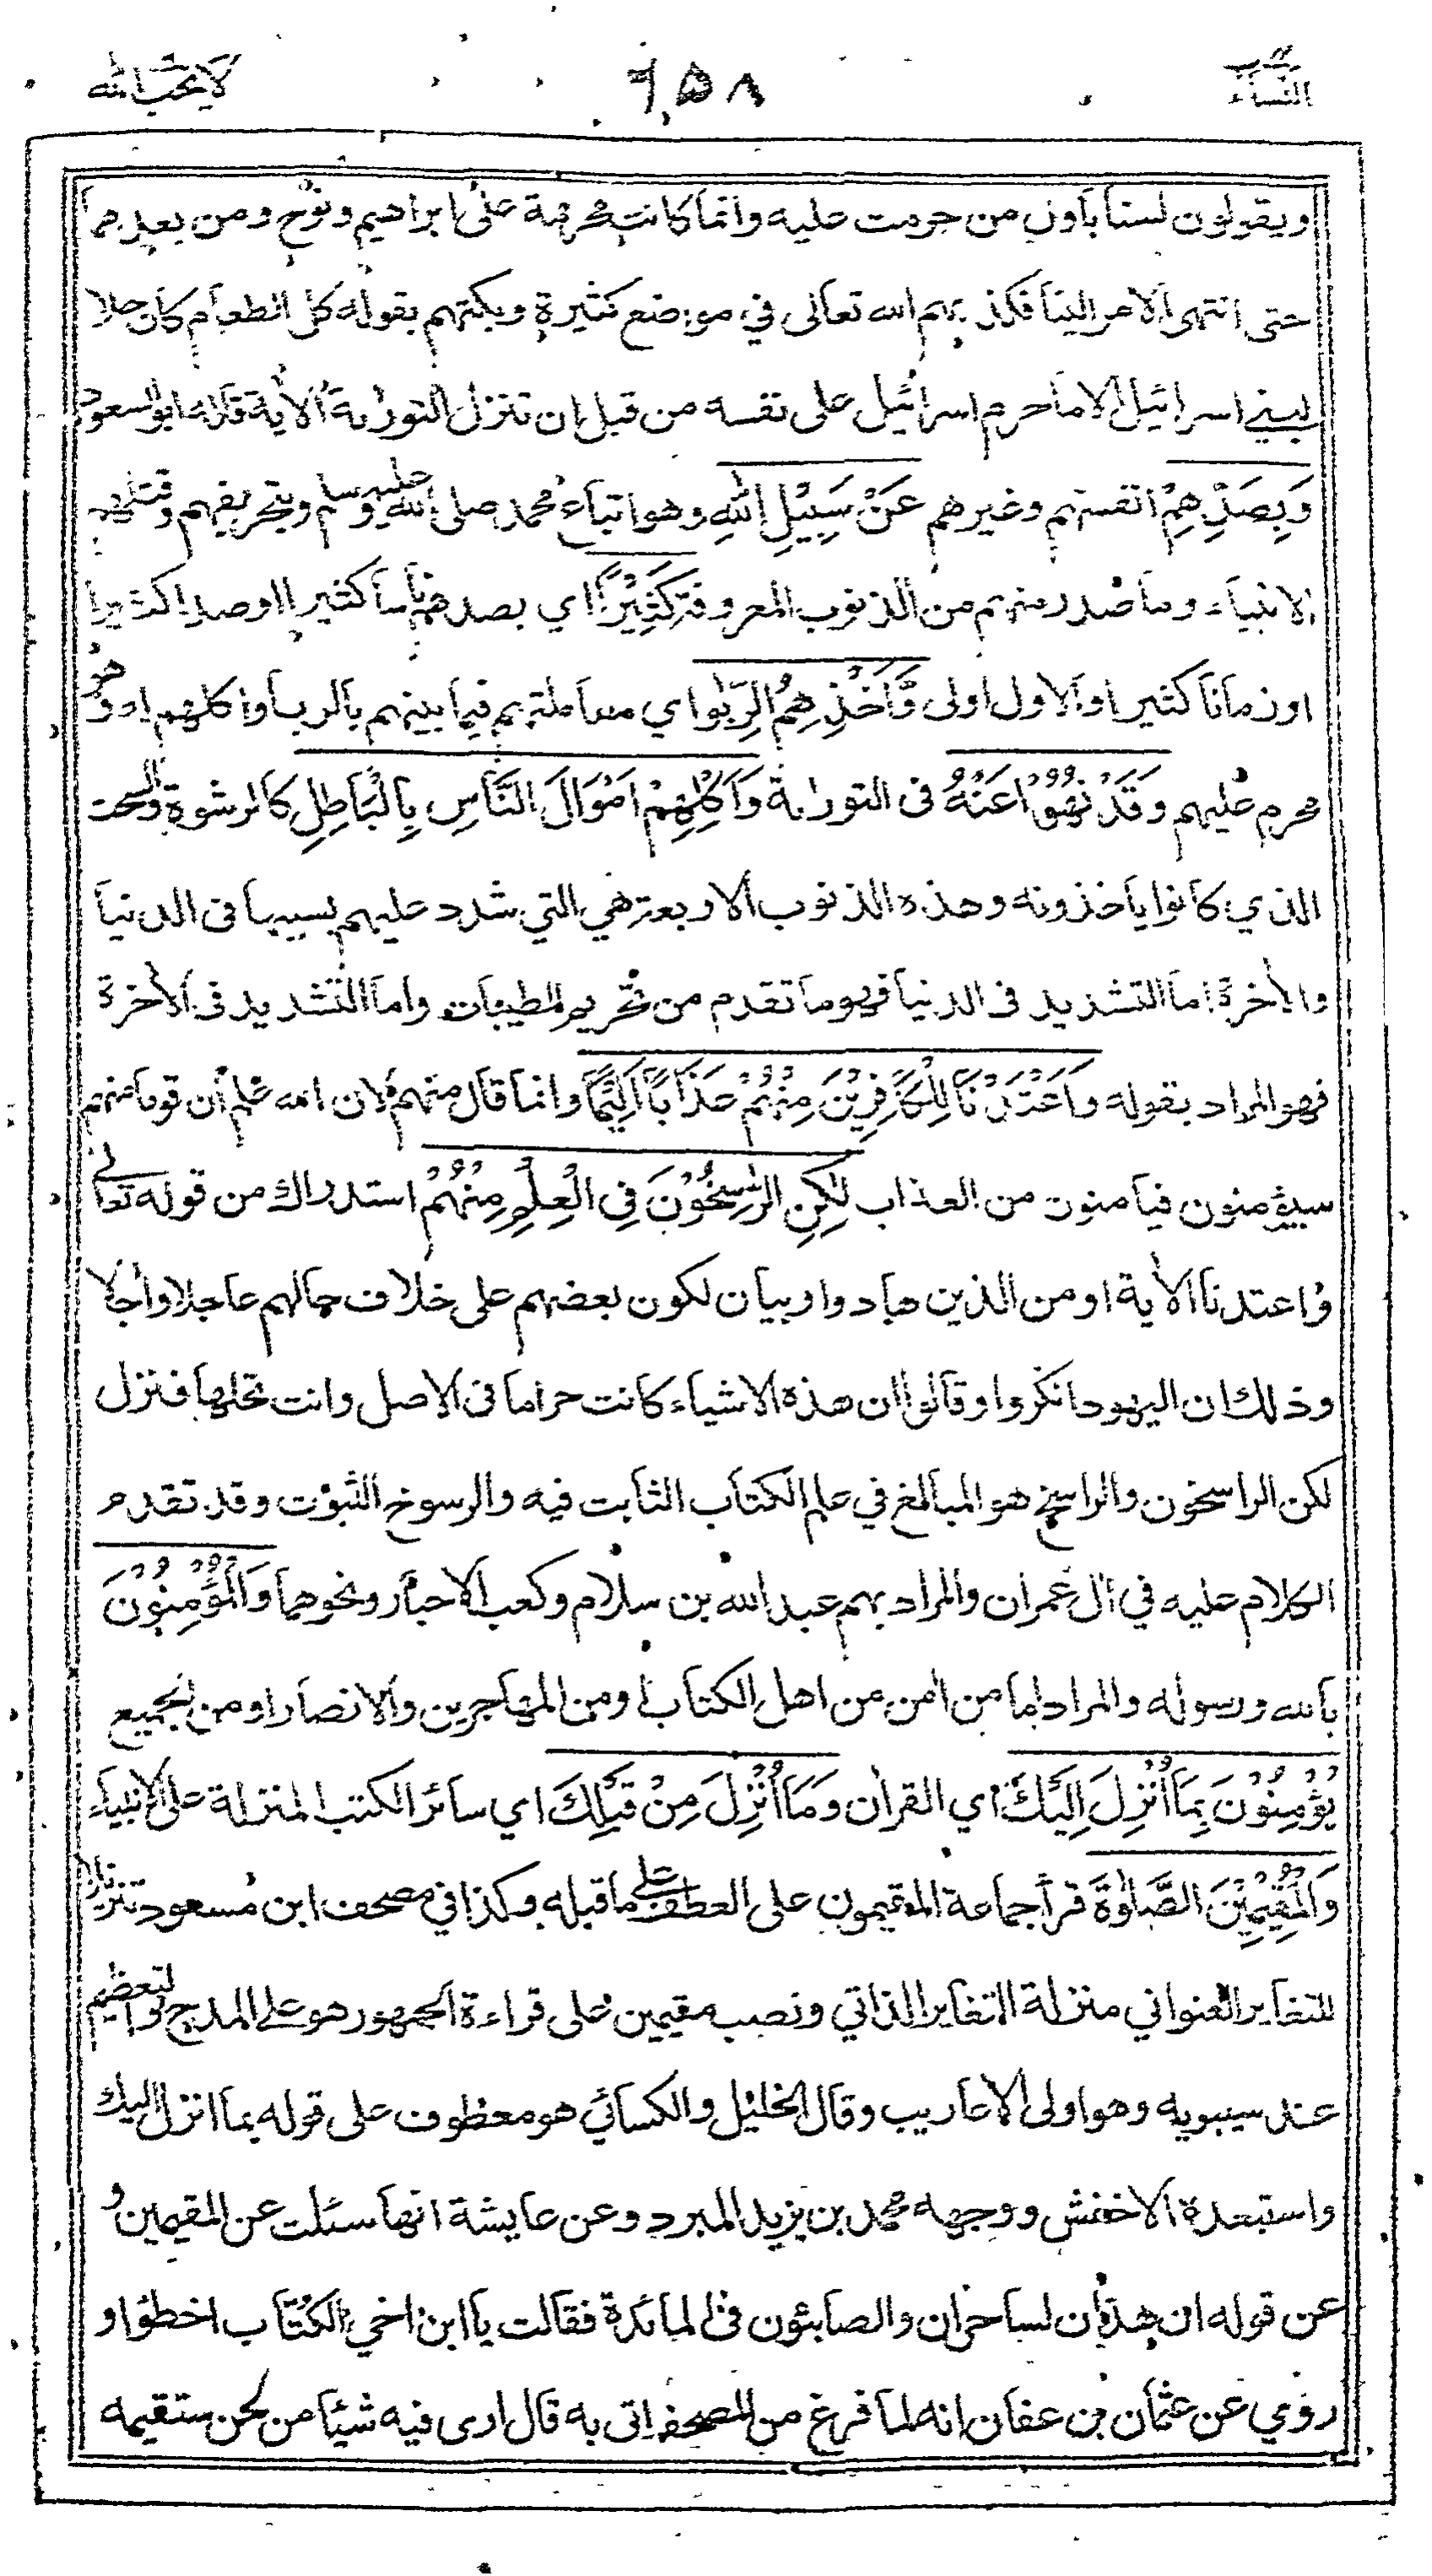 النساء
٦٥٨
لا يحب الله
ويقولون لسنا بأول من حرمت عليه وانما كانت محرمة على ابراهيم ونوح ومن بعدهما
حتى انتهى الامر الينا فكذبهم الله تعالى في مواضع كثيرة وبكتهم بقوله كل الطعام كان حلا
لبني اسرائيل الا ما حرم اسرائيل على نفسه من قبل ان تنزل التوراىة الأية قاله ابو السعود
وَبِصَدِّهِمْ انفسهم وغيرهم عَنْ سَبِيْلِ اللهِ وهو اتباع محمد صلى الله عليه وسلم وبتحريفهم وقتلهم
الانبياء وما صدر منهم من الذنوب المعروفة كَثِيْرًا اي بصدهم ناسا كثيرا او صدا كثيرا
او زمانا كثيرا والاول اولى وَّاَخْذِهِمُ الرِّبٰوا اي معاملتهم فيما بينهم بالربا واكلهم له وهو
محرم عليهم وَقَدْ نُهُوْا عَنْهُ فى التوراىة وَاَكْلِهِمْ اَمْوَالَ النَّاسِ بِالْبَاطِلِ كالرشوة والسحت
الذي كانوا يأخذونه وهذه الذنوب الاربعة هي التي شدد عليهم بسببها فى الدنيا
والأخرة اما التشديد فى الدنيا فهو ما تقدم من تحريم الطيبات واما التشديد فى الأخرة
فهو المراد بقوله وَاَعْتَدْنَا لِلْكَافِرِيْنَ مِنْهُمْ عَذَابًا اَلِيْمًا وانما قال منهم لان الله علم أن قوما منهم
سيؤمنون فيأمنون من العذاب لٰكِنِ الرّٰسِخُوْنَ فِى الْعِلْمِ مِنْهُمْ استدراك من قوله تعالى
واعتدنا الأية او من الذين هادوا وبيان لكون بعضهم على خلاف حالهم عاجلا وأجلا
وذلك ان اليهود انكروا وقالوا ان هذه الاشياء كانت حراما فى الاصل وانت تحلها فنزل
لكن الراسخون والراسخ هو المبالغ في علم الكتاب الثابت فيه والرسوخ الثبوت وقد تقدم
الكلام عليه في أل عمران والمراد بهم عبد الله بن سلام وكعب الاحبار ونحوهما وَالْمُؤْمِنُوْنَ
بالله ورسوله والمراد اما من أمن من اهل الكتاب او من المهاجرين والانصار او من الجميع
يُؤْمِنُوْنَ بِمَا اُنْزِلَ اِلَيْكَ اي القرأن وَمَا اُنْزِلَ مِنْ قَبْلِكَ اي سائر الكتب المنزلة على الانبياء
وَالْمُقِيْمِيْنَ الصَّلٰوةَ قرأ جماعة المقيمون على العطف على ما قبله وكذا في مصحف ابن مسعود تنزيلا
للتغاير العنواني منزلة التغاير الذاتي ونصب مقيمين على قراءة الجمهور هو على المدح والتعظيم
عند سيبويه وهو اولى الاعاريب وقال الخليل والكسائي هو معطوف على قوله بما انزل اليك
واستبعده الاخفش ووجهه محمد بن يزيد المبرد وعن عايشة انها سئلت عن المقيمين و
عن قوله ان هذٰن لساحران والصابئون فى المائدة فقالت يا ابن اخي الكُتّاب اخطؤا و
روي عن عثمان بن عفان انه لما فرغ من المصحف اتى به قال ارى فيه شيئا من لحن ستقيمه